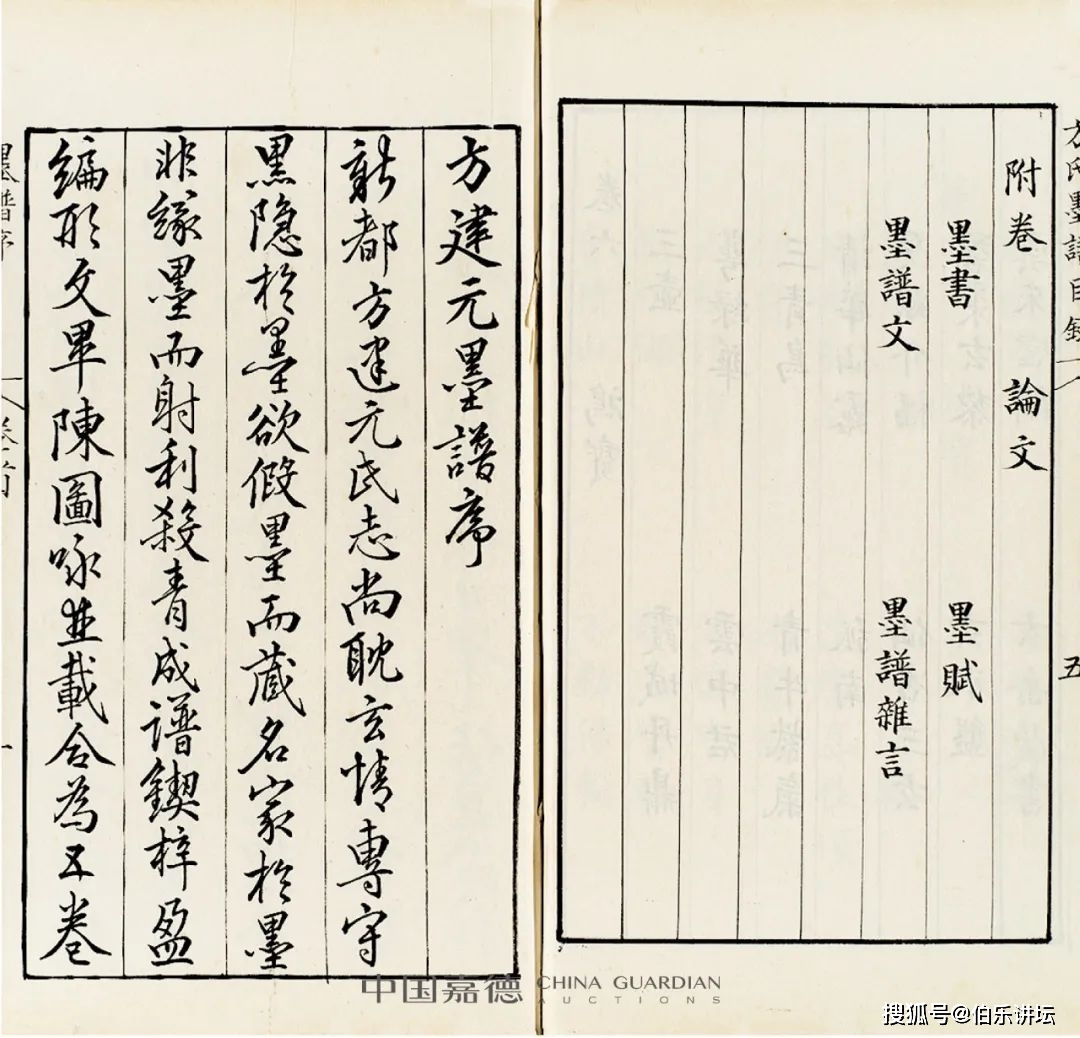 方氏墨譜目錄 五
附卷 論文
墨書 墨賦
墨譜文 墨譜雜言
方建元墨譜序
新都方建元氏志尚耽玄情專守
黑隐於墨欲假墨而藏名家於墨
非緣墨而射利殺青成譜鍥梓盈
編形文畢陳圖咏並載合為五卷
墨譜序 卷首 一
中国嘉德 CHINA GUARDIAN
AUCTIONS
搜狐号@伯乐讲坛